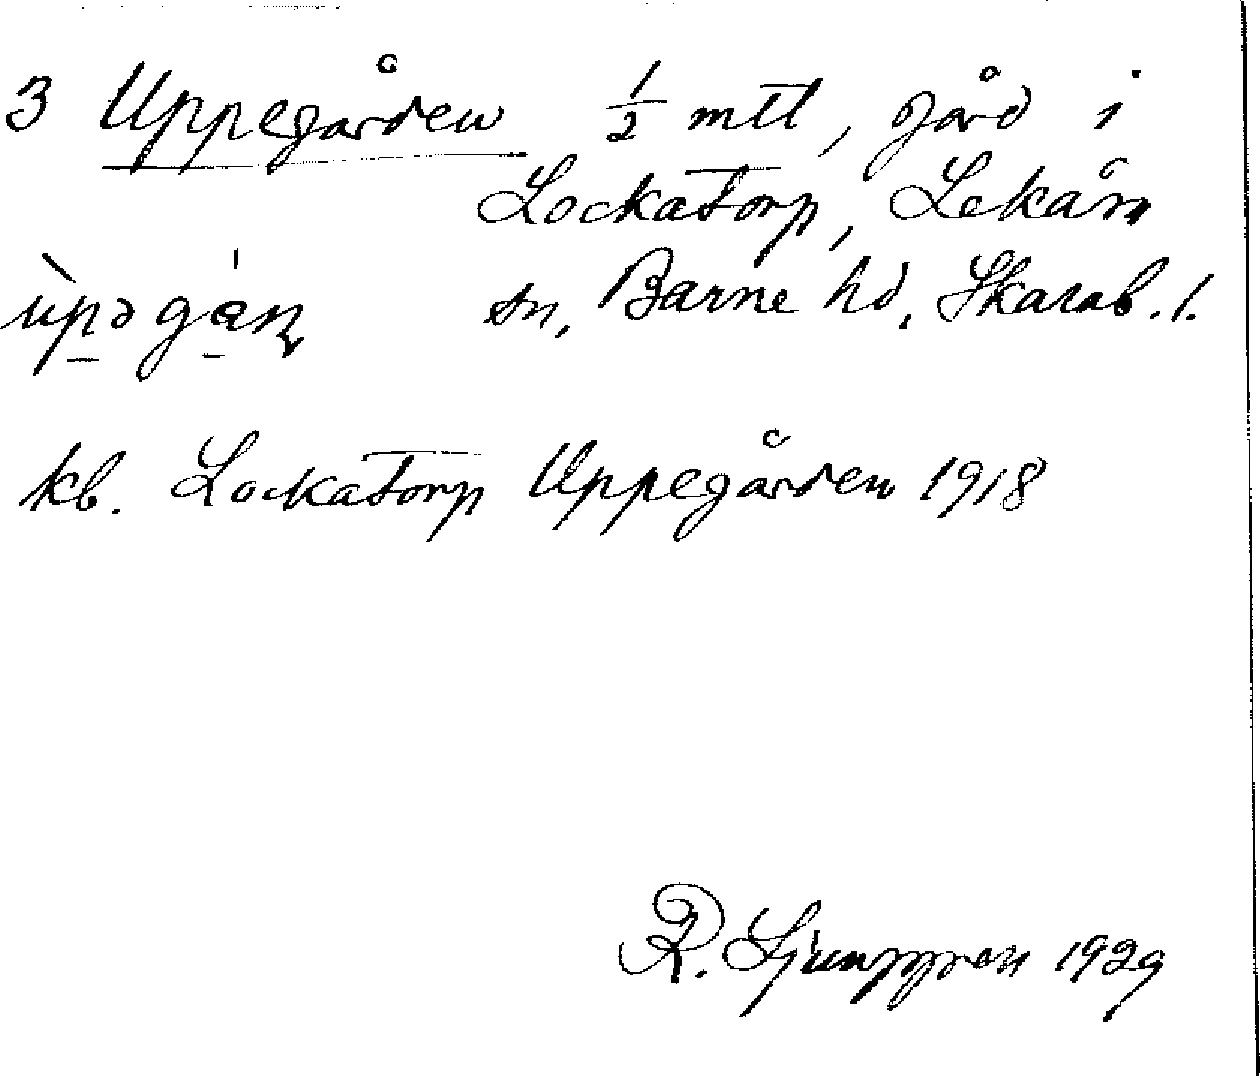 3 Uppegården 1/2 mtl, gård i
Lockatorp, Lekåsa
sn, Barne hd, Skarab. l.
kb. Lockatorp Uppegården 1918
R. Ljunggren 1929